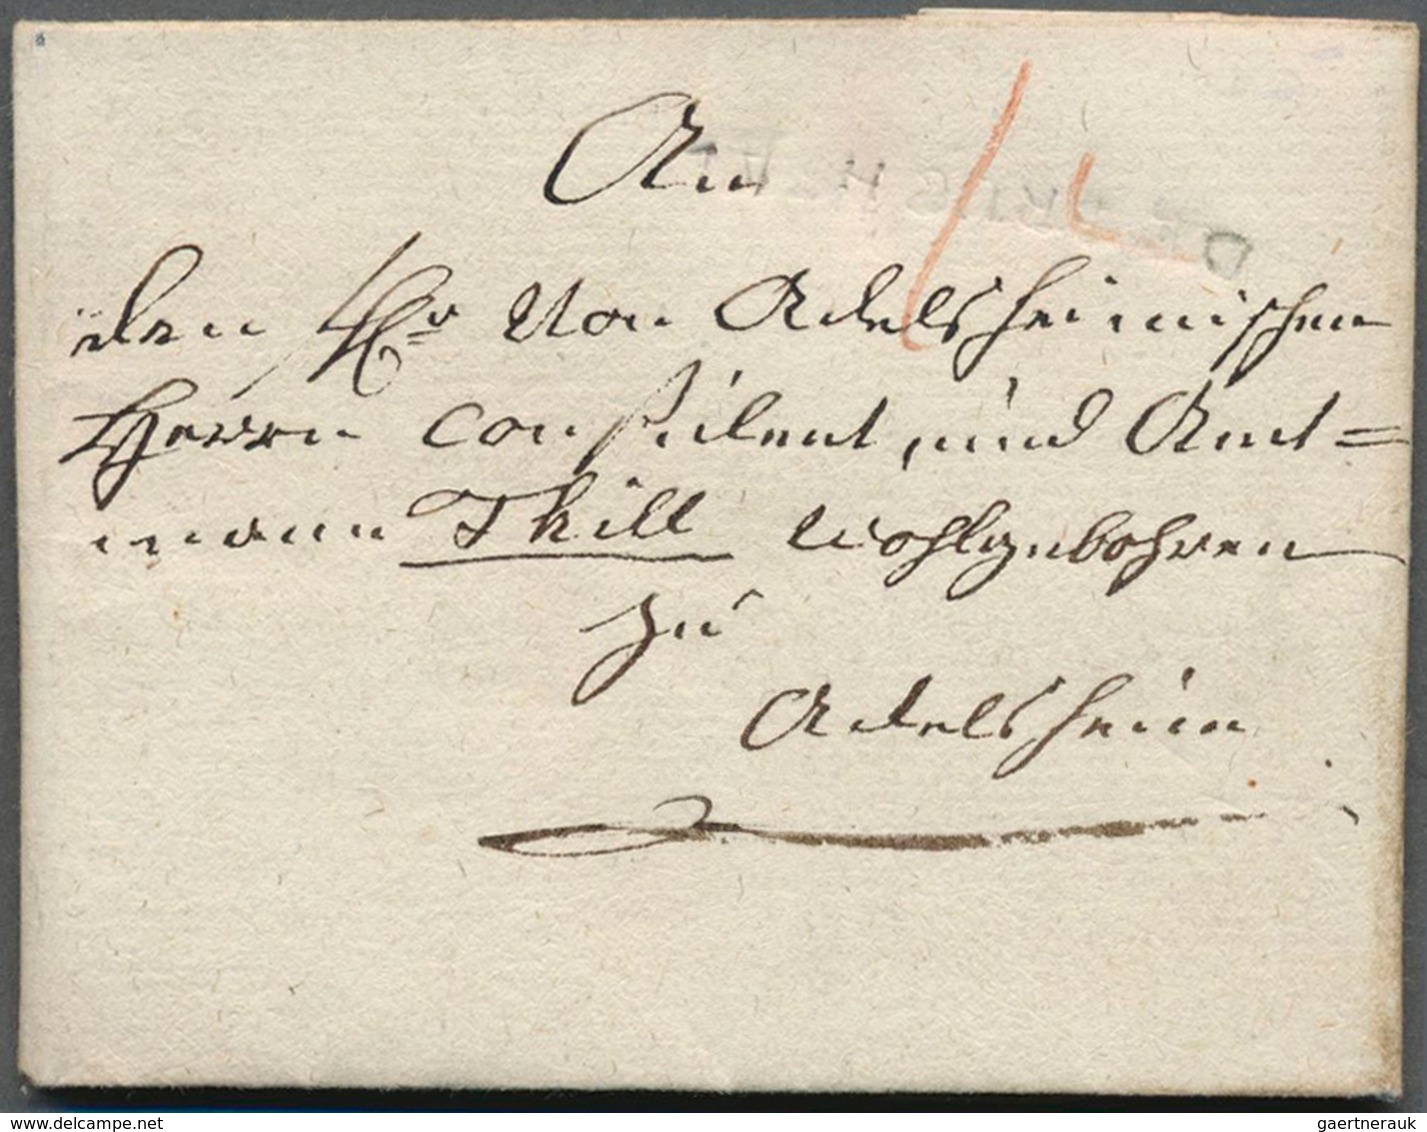 An
den Hr Von Adelsheimischen
Herrn Consulent, und Amt=
mann Thill Wohlgebohren
zu
Adelsheim
www.delcampe.net
gaertnerauk